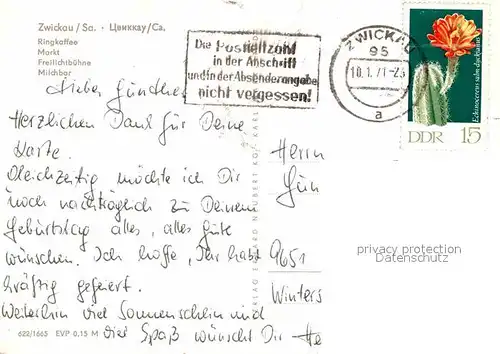 Zwickau/Sa. · Цвиккау/Са.
Ringkaffee
Markt
Freilichtbühne
Milchbar
Die Postleitzahl
in der Anschrift
und in der Absenderangabe
nicht vergessen!
ZWICKAU
95
a
Echinocereus salm dyckianus
DDR 15
Lieber Günther
Herzlichen Dank für Deine
Karte.
Gleichzeitig möchte ich Dir
noch nachträglich zu Deinem
Geburtstag alles, alles Gute
wünschen. Ich hoffe, Ihr habt
kräftig gefeiert.
Weiterhin viel Sonnenschein und
viel Spaß wünscht Dir He
Herrn
Gün
9651
Winters
privacy protection
Datenschutz
VERLAG ERHARD NEUBERT KGT KARL
622/1665 EVP 0,15 M